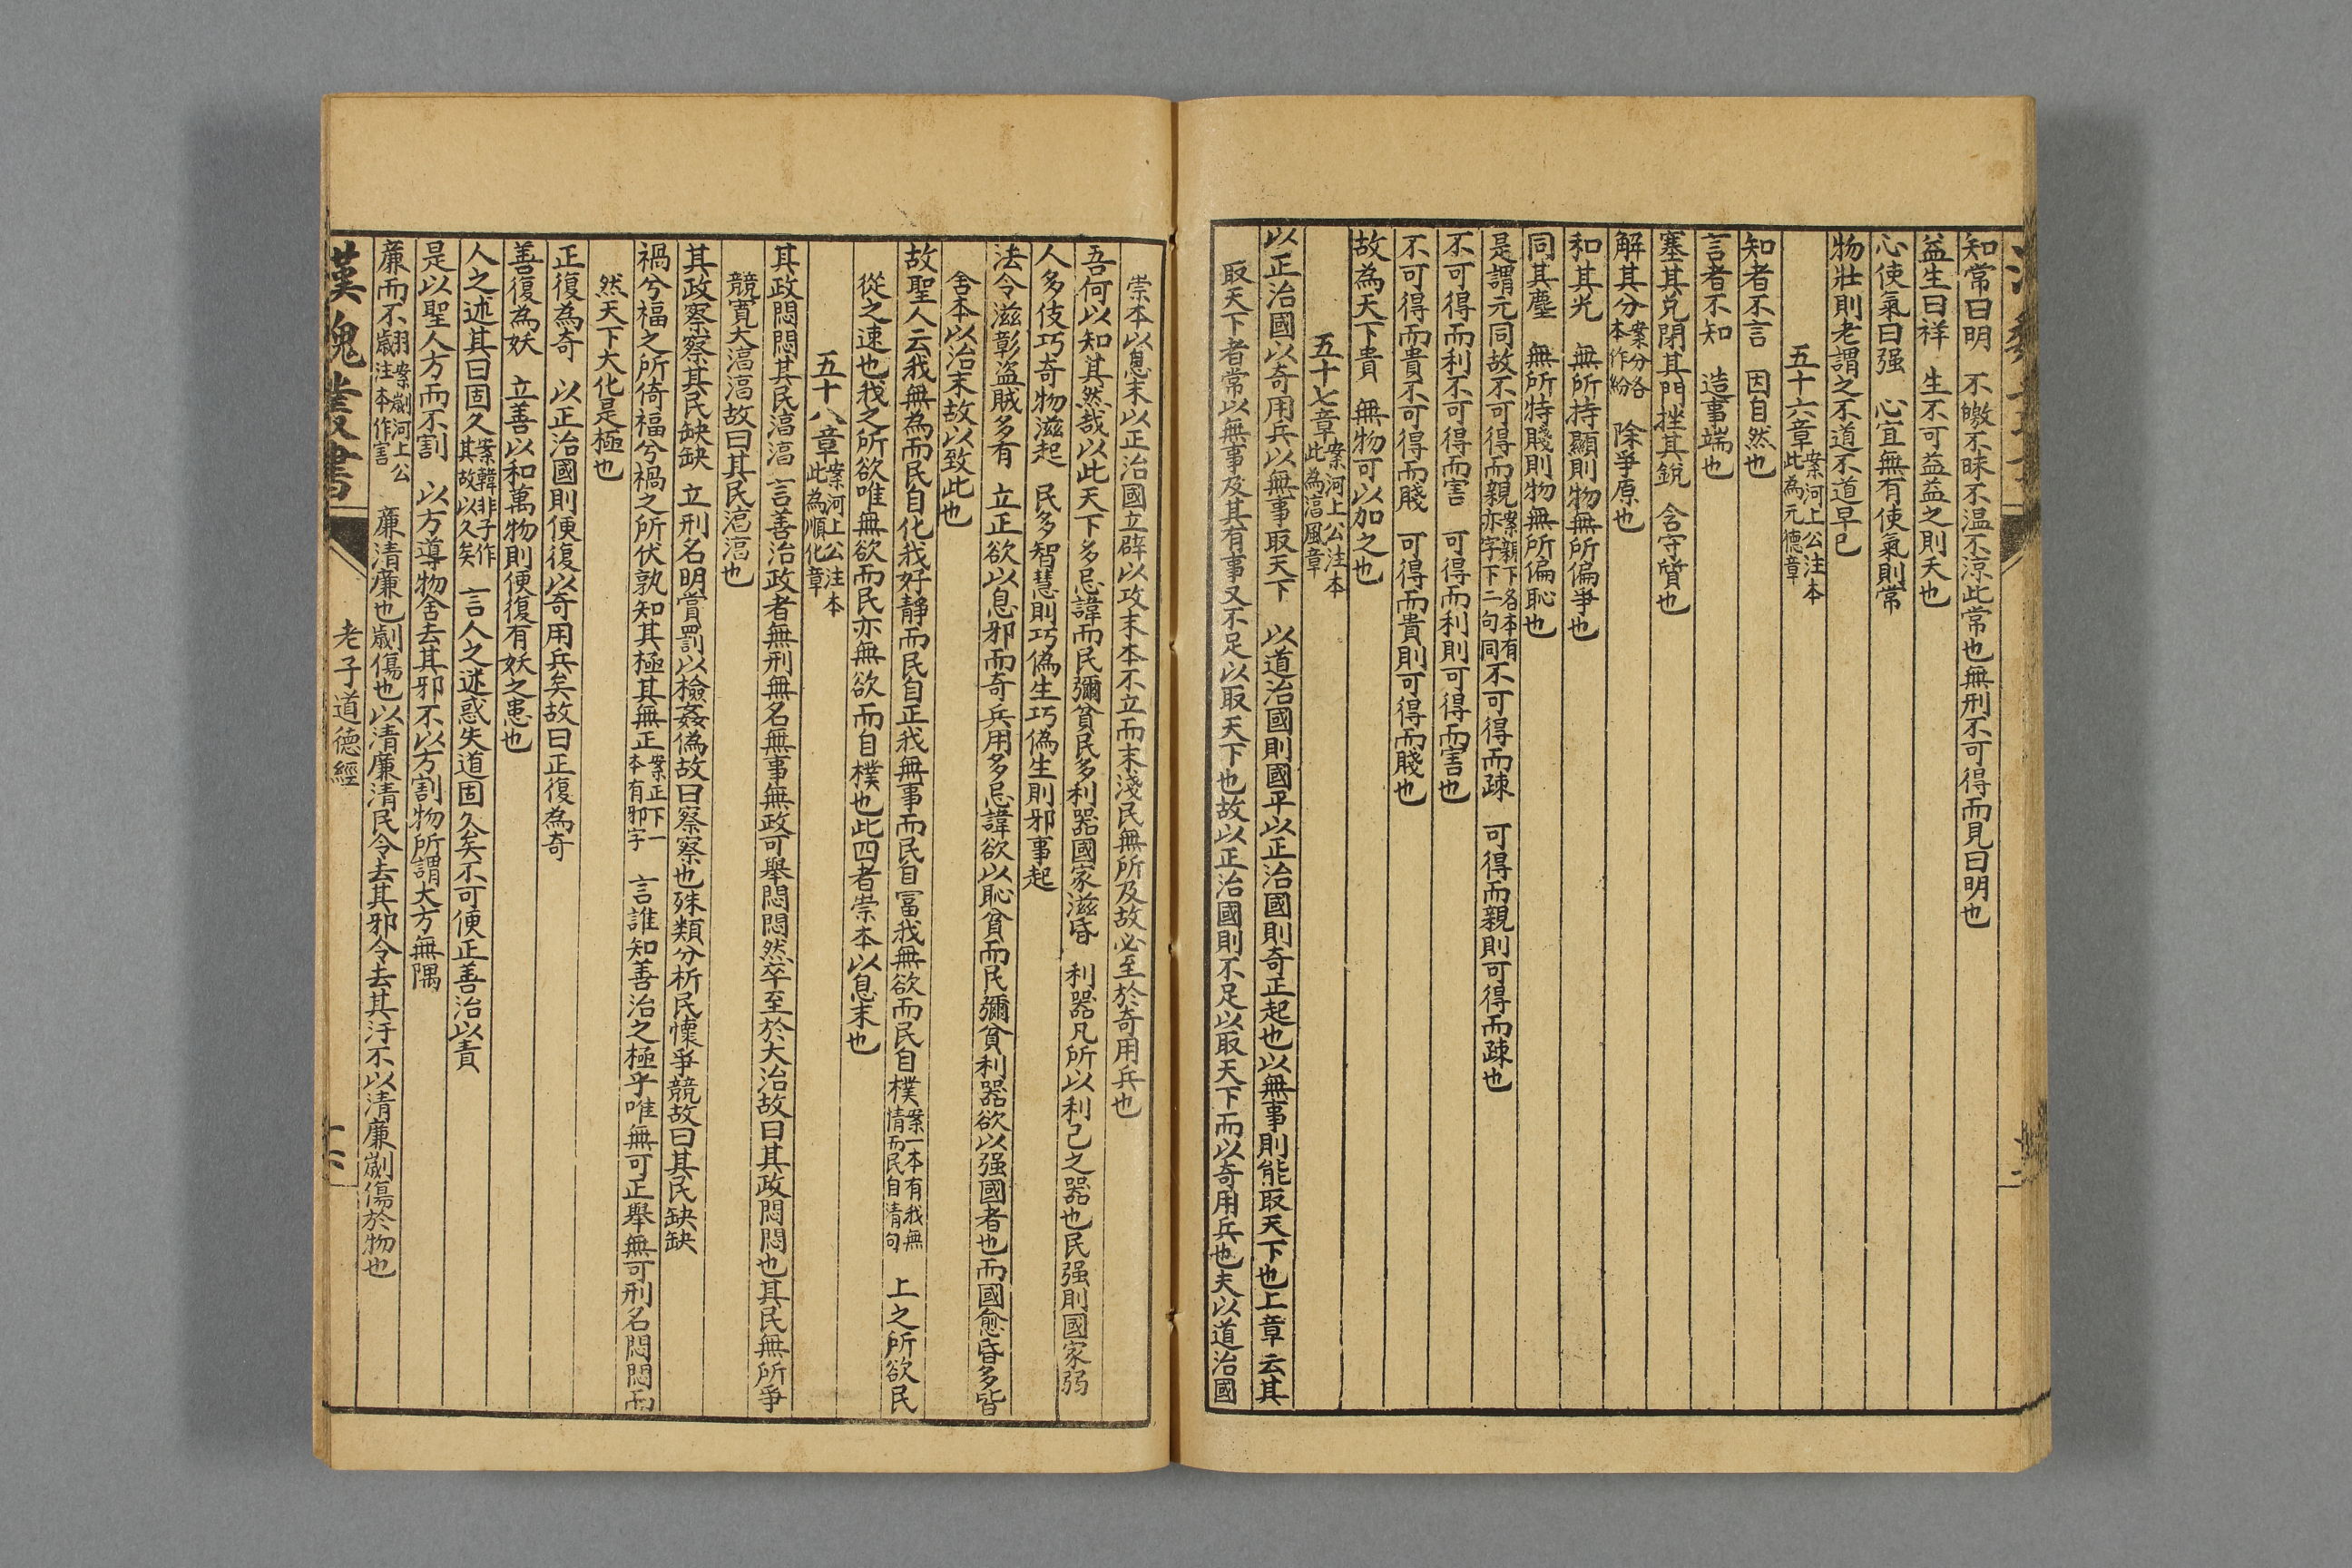 知常曰明　不皦不昧不温不涼此常也無刑不可得而見曰明也
益生曰祥　生不可益益之則夭也
心使氣曰强　心宜無有使氣則常
物壯則老謂之不道不道早已
五十六章案河上公注本此為元德章
知者不言　因自然也
言者不知　造事端也
塞其兌閉其門挫其銳　含守質也
解其分案分各本作紛　除爭原也
和其光　無所持顯則物無所偏爭也
同其塵　無所特賤則物無所偏恥也
是謂元同故不可得而親案親下各本有亦字下二句同不可得而疎　可得而親則可得而疎也
不可得而利不可得而害　可得而利則可得而害也
不可得而貴不可得而賤　可得而貴則可得而賤也
故為天下貴　無物可以加之也
五十七章案河上公注本此為湻風章
以正治國以奇用兵以無事取天下　以道治國則國平以正治國則奇正起也以無事則能取天下也上章云其
取天下者常以無事及其有事又不足以取天下也故以正治國則不足以取天下而以奇用兵也夫以道治國
崇本以息末以正治國立辟以攻末本不立而末淺民無所及故必至於奇用兵也
吾何以知其然哉以此天下多忌諱而民彌貧民多利器國家滋昏　利器凡所以利己之器也民强則國家弱
人多伎巧奇物滋起　民多智慧則巧偽生巧偽生則邪事起
法令滋彰盜賊多有　立正欲以息邪而奇兵用多忌諱欲以恥貧而民彌貧利器欲以强國者也而國愈昏多皆
舍本以治末故以致此也
故聖人云我無為而民自化我好靜而民自正我無事而民自富我無欲而民自樸案一本有我無情而民自清句　上之所欲民
從之速也我之所欲唯無欲而民亦無欲而自樸也此四者崇本以息末也
五十八章案河上公注本此為順化章
其政悶悶其民湻湻　言善治政者無刑無名無事無政可舉悶悶然卒至於大治故曰其政悶悶也其民無所爭
競寬大湻湻故曰其民湻湻也
其政察察其民缺缺　立刑名明賞罰以檢姦偽故曰察察也殊類分析民懷爭競故曰其民缺缺
禍兮福之所倚福兮禍之所伏孰知其極其無正案正下一本有邪字　言誰知善治之極乎唯無可正舉無可刑名悶悶而
然天下大化是極也
正復為奇　以正治國則便復以奇用兵矣故曰正復為奇
善復為妖　立善以和萬物則便復有妖之患也
人之迷其日固久案韓非子作其故以久矣　言人之迷惑失道固久矣不可便正善治以責
是以聖人方而不割　以方導物舍去其邪不以方割物所謂大方無隅
廉而不劌案劌河上公注本作害　廉清廉也劌傷也以清廉清民令去其邪令去其汙不以清廉劌傷於物也
漢魏叢書
老子道德經
十六